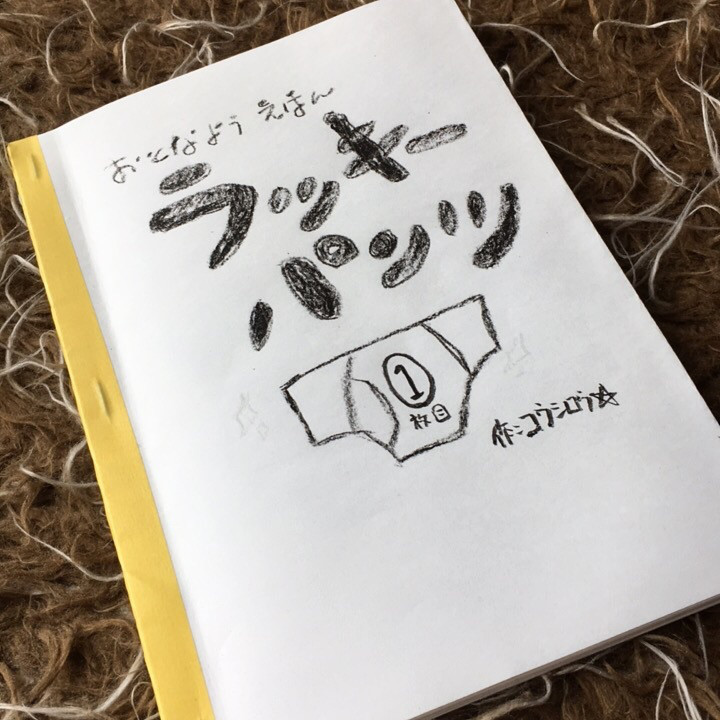 おとなよう えほん
ラッキー
パンツ
1
枚目
作:コウシロウ☆